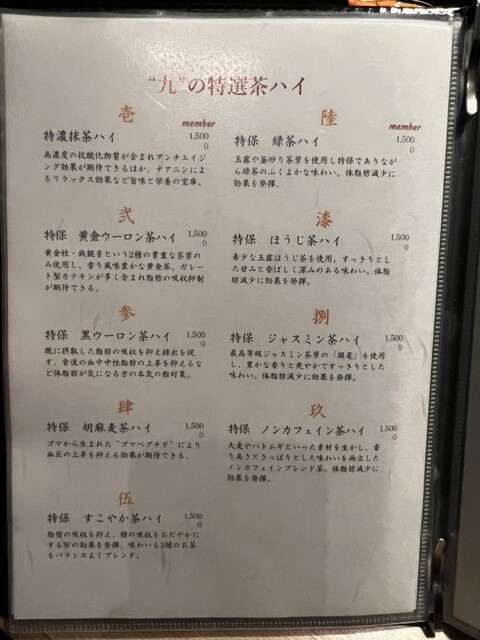 “九”の特選茶ハイ
壱
member
特濃抹茶ハイ 1,500
0
高濃度の抗酸化物質が含まれアンチエイジ
ング効果が期待できるほか、テアニンによ
るリラックス効果など旨味と栄養の宝庫。
弐
特保 黄金ウーロン茶ハイ 1,500
0
黄金桂・鉄観音という2種の貴重な茶葉の
み使用し、香り風味豊かな黄金茶。ガレー
ト型カテキンが多く含まれ脂肪の吸収抑制
が期待できる。
参
特保 黒ウーロン茶ハイ 1,500
0
既に摂取した脂肪の吸収を抑え排出を促
す、食後の血中中性脂肪の上昇を抑えるな
ど体脂肪が気になる方の本気の脂対策。
肆
特保 胡麻麦茶ハイ 1,500
0
ゴマから生まれた“ゴマペプチド”により
血圧の上昇を抑える効果が期待できる。
伍
特保 すこやか茶ハイ 1,500
0
脂肪の吸収を抑え、糖の吸収をおだやかに
するWの効果を発揮。味わいも3種のお茶
をバランスよくブレンド。
陸
member
特保 緑茶ハイ 1,500
0
玉露や釜炒り茶葉を使用し特保でありなが
ら緑茶のふくよかな味わい。体脂肪減少に
効果を発揮。
漆
特保 ほうじ茶ハイ 1,500
0
希少な玉露ほうじ茶を使用。すっきりとし
た甘みと香ばしく深みのある味わい。体脂
肪減少に効果を発揮。
捌
特保 ジャスミン茶ハイ 1,500
0
最高等級ジャスミン茶葉の「銀毫」を使用
し、豊かな香りと爽やかですっきりとした
味わい。体脂肪減少に効果を発揮。
玖
特保 ノンカフェイン茶ハイ 1,500
0
大麦やハトムギといった素材を生かし、香
り高さとさっぱりとした味わいを両立した
ノンカフェインブレンド茶。体脂肪減少に
効果を発揮。